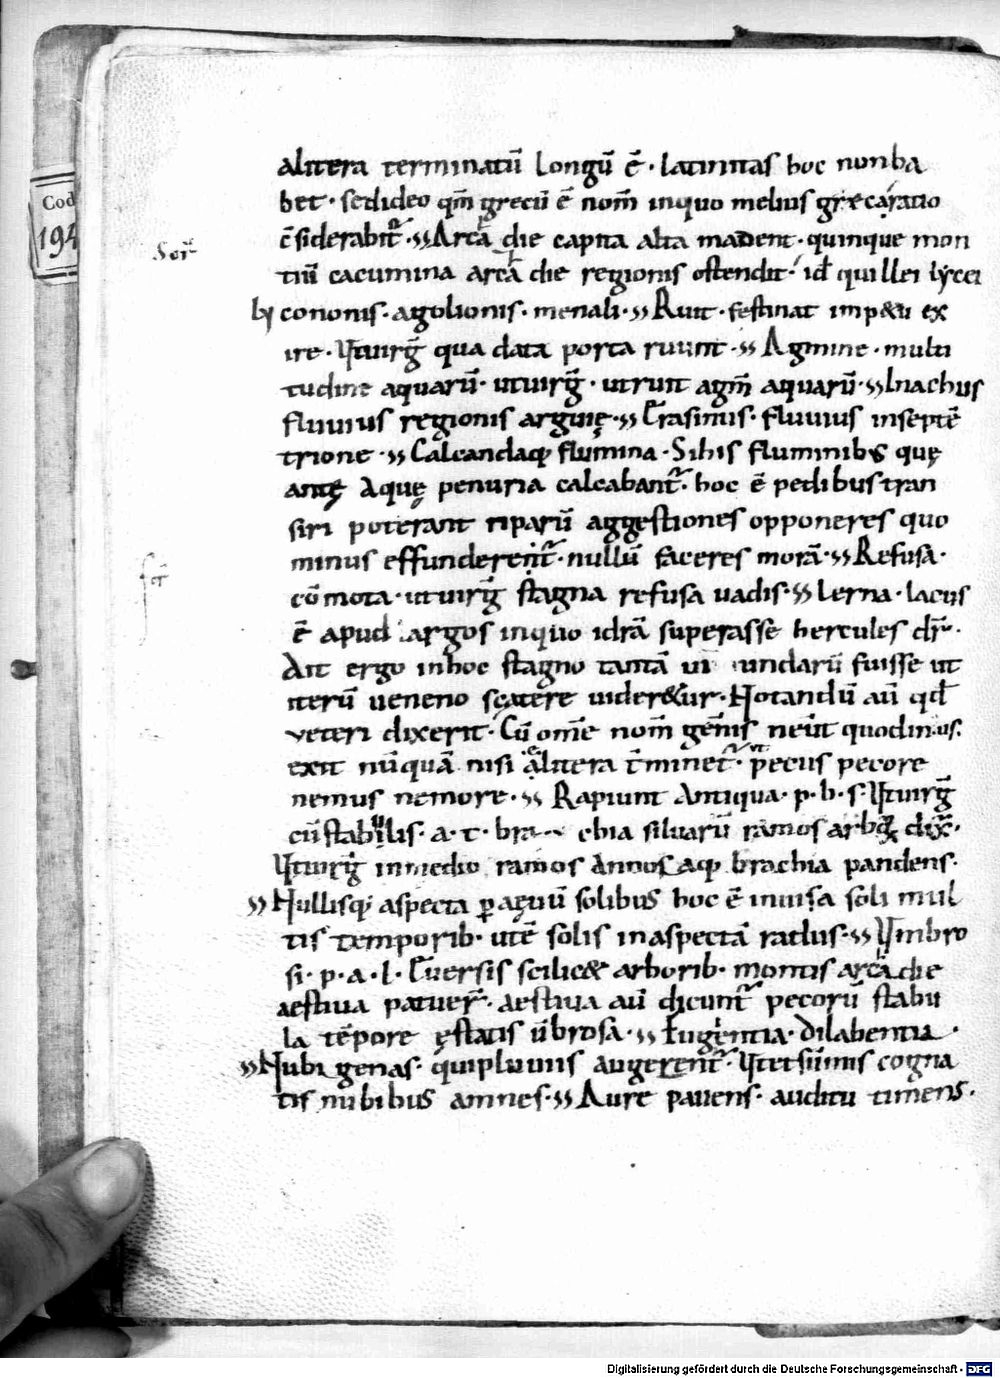 alitera terminatū longū ē · latinitas hoc non ha
bet · sed ideo qm̄ grecū ē nom̄ in quo melius greca ratio
c̄siderabit᷑ · Arcā die capita alta madent · quinque mon
tiū cacumina arcā die regionis ostendit · id qui llei lycei
ly cononis · agolionis · menali · Ruit · festinat imp&u ex
ire · Vt uirḡ qua data porta ruunt · Agmine · multi
tudine aquarū · ut uirḡ · ut runt agm̄ aquarū · Inachus
fluuius regionis arguię · Erasimus · fluuius in septē
trione · Calcandaq; flumina · Sihis fluminib; quę
antę Aquę penuria calcabant᷑ · hoc ē pedibus tran
siri poterant riparū aggestiones opponeres quo
minus effunderent᷑ · nullū faceres morā · Refusa ·
cōmota · ut uirḡ stagna refusa uadis · Lerna · lacus
ē apud argos in quo idrā superasse hercules dr̄ ·
Ait ergo in hoc stagno tantā undarū fuisse ut
iterū ueneno scatere uider&ur · Notandū aū qd̄
veteri dixerit · Cū om̄e nom̄ gen̄is neut̄ quod in · us ·
exit nūquā nisi alitera t̄minet᷑ · ut pecus pecore
nemus nemore · Rapiunt Antiqua · p · b · s · Vt uirḡ
cū stabulis · a · t · bra ebia siluarū ramos arbo᷑ dix̄ ·
Vt uirḡ in medio ramos Annosaq; brachia pandens ·
Nullisq; aspecta p aęuū solibus hoc ē inuisa soli mul
tis temporib · utē solis inaspectā radus · Vmbro
si · p · a · l · Euersis scilic& arborib · montis arcā die
aestiua patuer᷑ · aestiua aū dicunt᷑ pecorū stabu
la tēpore ęstatis ūbrosa · Fugentia · dilabentia ·
Nubi genas · qui pluuiis augerent᷑ · Vt et sūmis cogna
tis nubibus amnes · Aure pauens · auditu timens ·
Cod
194
Digitalisierung gefördert durch die Deutsche Forschungsgemeinschaft · DFG